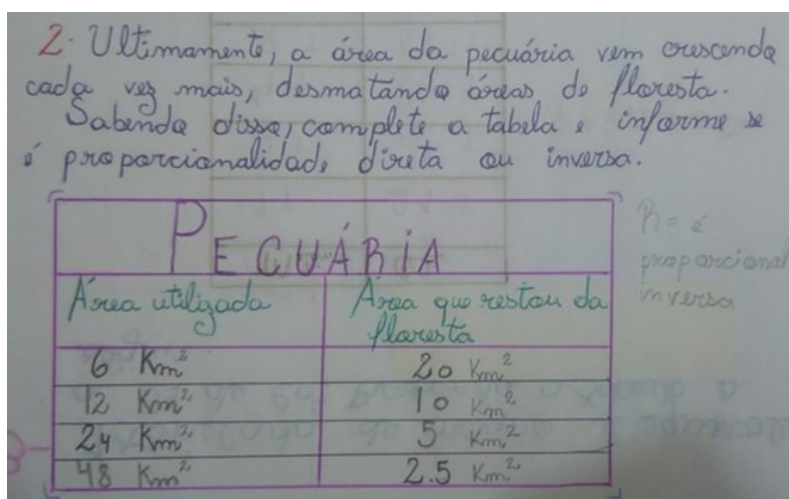 2- Ultimamente, a área da pecuária vem crescendo
cada vez mais, desmatando áreas de floresta.
Sabendo disso, complete a tabela e informe se
é proporcionalidade direta ou inversa.
PECUÁRIA
Área utilizada Área que restou da
floresta
6 Km² 20 Km²
12 Km² 10 Km²
24 Km² 5 Km²
48 Km² 2.5 Km²
R= é
proporcional
inversa